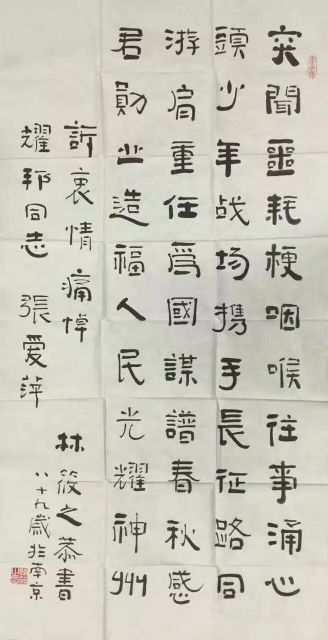 突聞噩耗梗咽喉往事涌心
頭少年战场携手長征路同
游肩重任為國謀譜春秋感
君勛业造福人民光耀神州
訴衷情痛悼
耀邦同志 張愛萍
林筱之恭書
八十九歲於南京